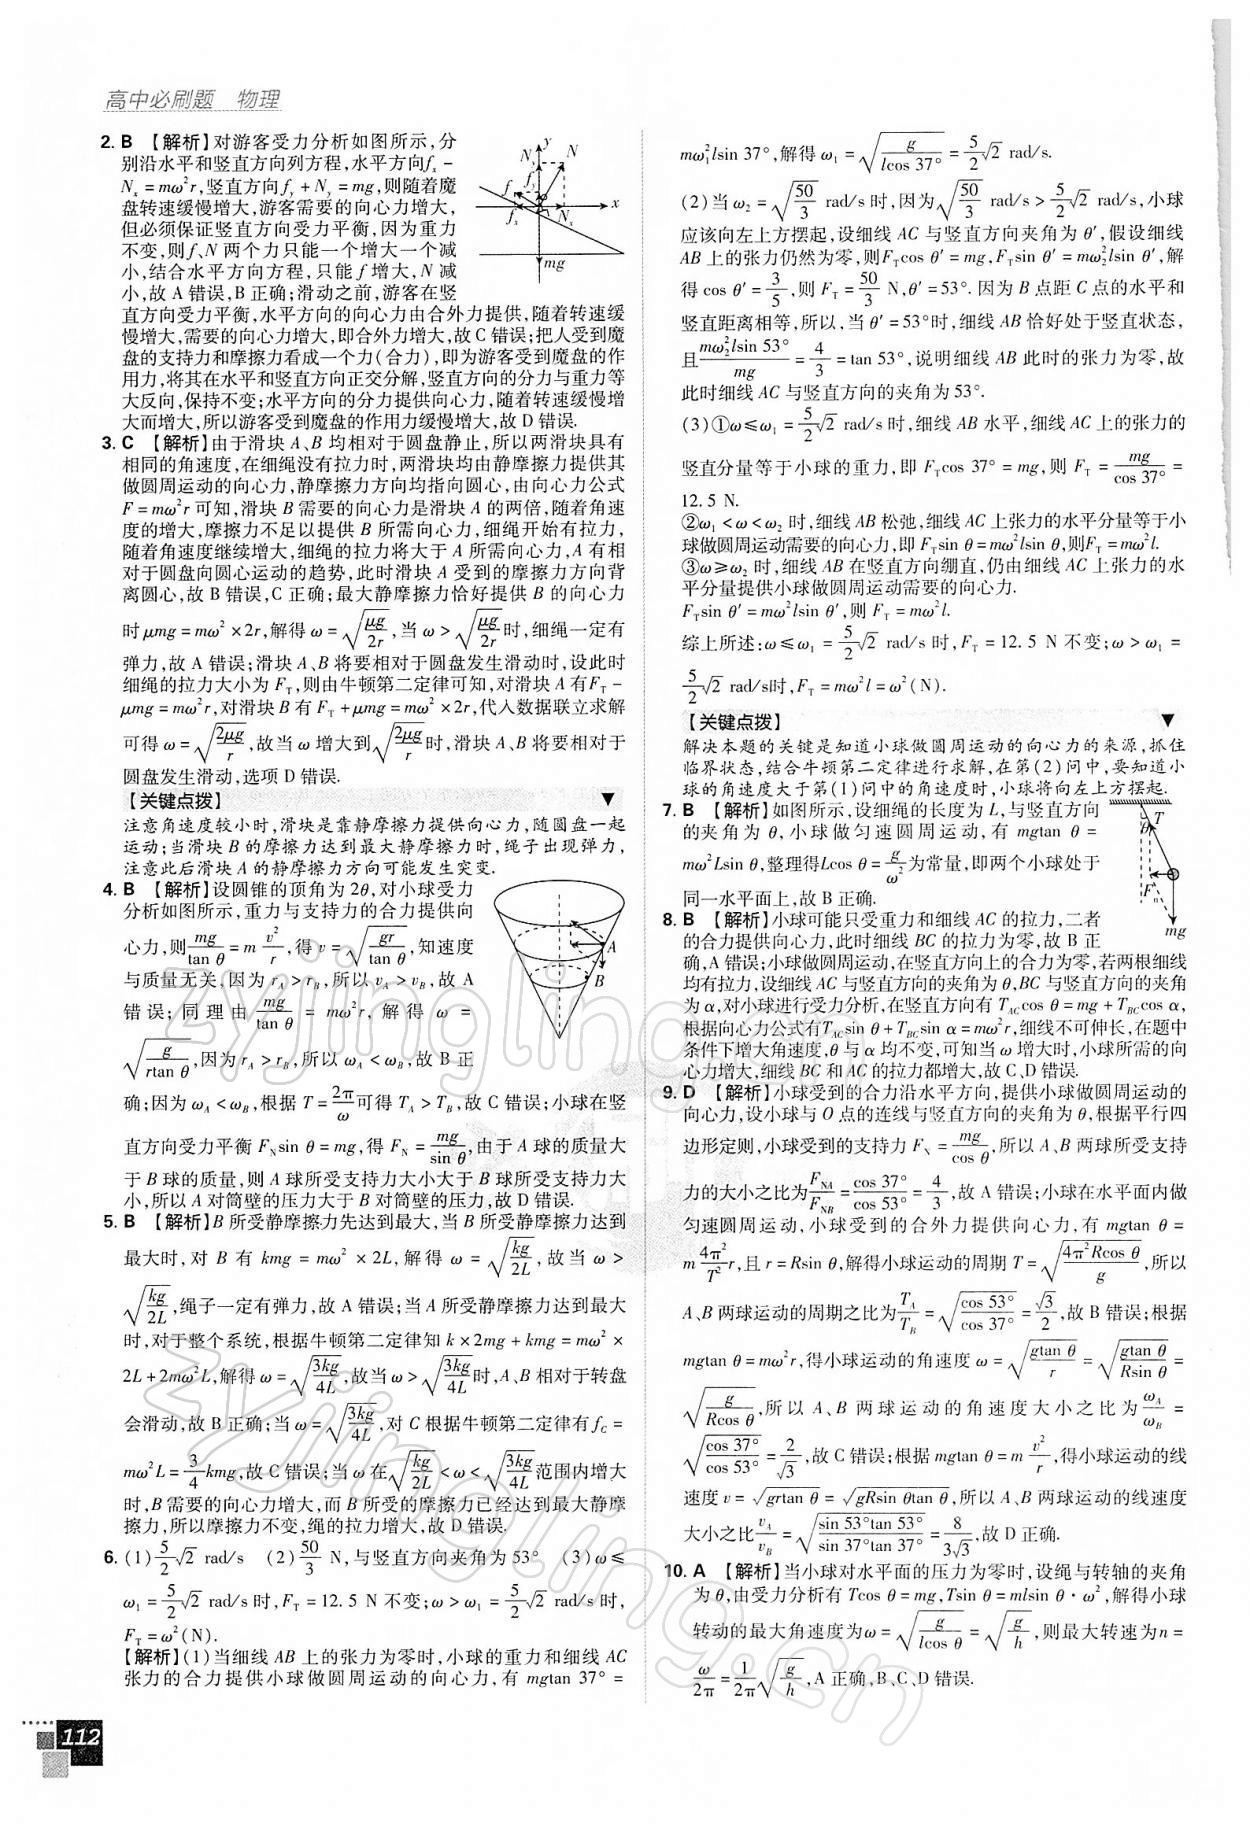 高中必刷题 物理
2. B 【解析】对游客受力分析如图所示,分
别沿水平和竖直方向列方程,水平方向fₓ-
Nₓ=mω²r,竖直方向f_y+N_y=mg,则随着魔
盘转速缓慢增大,游客需要的向心力增大,
但必须保证竖直方向受力平衡,因为重力
不变,则f、N两个力只能一个增大一个减
小,结合水平方向方程,只能f增大,N减
小,故A错误,B正确;滑动之前,游客在竖
直方向受力平衡,水平方向的向心力由合外力提供,随着转速缓
慢增大,需要的向心力增大,即合外力增大,故C错误;把人受到魔
盘的支持力和摩擦力看成一个力(合力),即为游客受到魔盘的作
用力,将其在水平和竖直方向正交分解,竖直方向的分力与重力等
大反向,保持不变;水平方向的分力提供向心力,随着转速缓慢增
大而增大,所以游客受到魔盘的作用力缓慢增大,故D错误.
y
N_y
N
f
f_y
fₓ
Nₓ
x
mg
3. C 【解析】由于滑块A、B均相对于圆盘静止,所以两滑块具有
相同的角速度,在细绳没有拉力时,两滑块均由静摩擦力提供其
做圆周运动的向心力,静摩擦力方向均指向圆心,由向心力公式
F=mω²r可知,滑块B需要的向心力是滑块A的两倍,随着角速
度的增大,摩擦力不足以提供B所需向心力,细绳开始有拉力,
随着角速度继续增大,细绳的拉力将大于A所需向心力,A有相
对于圆盘向圆心运动的趋势,此时滑块A受到的摩擦力方向背
离圆心,故B错误,C正确;最大静摩擦力恰好提供B的向心力
时μmg=mω²×2r,解得ω=√(μg/2r),当ω>√(μg/2r)时,细绳一定有
弹力,故A错误;滑块A、B将要相对于圆盘发生滑动时,设此时
细绳的拉力大小为F_T,则由牛顿第二定律可知,对滑块A有F_T-
μmg=mω²r,对滑块B有F_T+μmg=mω²×2r,代入数据联立求解
可得ω=√(2μg/r),故当ω增大到√(2μg/r)时,滑块A、B将要相对于
圆盘发生滑动,选项D错误.
【关键点拨】▼
注意角速度较小时,滑块是靠静摩擦力提供向心力,随圆盘一起
运动;当滑块B的摩擦力达到最大静摩擦力时,绳子出现弹力,
注意此后滑块A的静摩擦力方向可能发生突变.
4. B 【解析】设圆锥的顶角为2θ,对小球受力
分析如图所示,重力与支持力的合力提供向
心力,则mg/tan θ=m v²/r,得v=√(gr/tan θ),知速度
与质量无关,因为r_A>r_B,所以v_A>v_B,故A
错误;同理由mg/tan θ=mω²r,解得ω=
√(g/rtan θ),因为r_A>r_B,所以ω_A<ω_B,故B正
确;因为ω_A<ω_B,根据T=2π/ω可得T_A>T_B,故C错误;小球在竖
直方向受力平衡F_N sin θ=mg,得F_N=mg/sin θ,由于A球的质量大
于B球的质量,则A球所受支持力大小大于B球所受支持力大
小,所以A对筒壁的压力大于B对筒壁的压力,故D错误.
A
B
5. B 【解析】B所受静摩擦力先达到最大,当B所受静摩擦力达到
最大时,对B有kmg=mω²×2L,解得ω=√(kg/2L),故当ω>
√(kg/2L),绳子一定有弹力,故A错误;当A所受静摩擦力达到最大
时,对于整个系统,根据牛顿第二定律知k×2mg+kmg=mω²×
2L+2mω²L,解得ω=√(3kg/4L),故当ω>√(3kg/4L)时,A、B相对于转盘
会滑动,故B正确;当ω=√(3kg/4L),对C根据牛顿第二定律有f_C=
mω²L=3/4 kmg,故C错误;当ω在√(kg/2L)<ω<√(3kg/4L)范围内增大
时,B需要的向心力增大,而B所受的摩擦力已经达到最大静摩
擦力,所以摩擦力不变,绳的拉力增大,故D错误.
6. (1)5/2√2 rad/s (2)50/3 N,与竖直方向夹角为53° (3)ω≤
ω₁=5/2√2 rad/s时,F_T=12.5 N不变;ω>ω₁=5/2√2 rad/s时,
F_T=ω²(N).
【解析】(1)当细线AB上的张力为零时,小球的重力和细线AC
张力的合力提供小球做圆周运动的向心力,有mgtan 37°=
mω₁²lsin 37°,解得ω₁=√(g/lcos 37°)=5/2√2 rad/s.
(2)当ω₂=√(50/3) rad/s时,因为√(50/3) rad/s>5/2√2 rad/s,小球
应该向左上方摆起,设细线AC与竖直方向夹角为θ′,假设细线
AB上的张力仍然为零,则F_T cos θ′=mg,F_T sin θ′=mω₂²lsin θ′,解
得cos θ′=3/5,则F_T=50/3 N,θ′=53°.因为B点距C点的水平和
竖直距离相等,所以,当θ′=53°时,细线AB恰好处于竖直状态,
且mω₂²lsin 53°/mg=4/3=tan 53°,说明细线AB此时的张力为零,故
此时细线AC与竖直方向的夹角为53°.
(3)①ω≤ω₁=5/2√2 rad/s时,细线AB水平,细线AC上张力的
竖直分量等于小球的重力,即F_T cos 37°=mg,则F_T=mg/cos 37°=
12.5 N.
②ω₁<ω<ω₂时,细线AB松弛,细线AC上张力的水平分量等于小
球做圆周运动需要的向心力,即F_T sin θ=mω²lsin θ,则F_T=mω²l.
③ω≥ω₂时,细线AB在竖直方向绷直,仍由细线AC上张力的水
平分量提供小球做圆周运动需要的向心力.
F_T sin θ′=mω²lsin θ′,则F_T=mω²l.
综上所述:ω≤ω₁=5/2√2 rad/s时,F_T=12.5 N不变;ω>ω₁=
5/2√2 rad/s时,F_T=mω²l=ω²(N).
【关键点拨】▼
解决本题的关键是知道小球做圆周运动的向心力的来源,抓住
临界状态,结合牛顿第二定律进行求解,在第(2)问中,要知道小
球的角速度大于第(1)问中的角速度时,小球将向左上方摆起.
7. B 【解析】如图所示,设细绳的长度为L,与竖直方向
的夹角为θ,小球做匀速圆周运动,有mgtan θ=
mω²Lsin θ,整理得Lcos θ=g/ω²为常量,即两个小球处于
同一水平面上,故B正确.
θ
T
Fₙ
mg
8. B 【解析】小球可能只受重力和细线AC的拉力,二者
的合力提供向心力,此时细线BC的拉力为零,故B正
确,A错误;小球做圆周运动,在竖直方向上的合力为零,若两根细线
均有拉力,设细线AC与竖直方向的夹角为θ,BC与竖直方向的夹角
为α,对小球进行受力分析,在竖直方向有T_AC cos θ=mg+T_BC cos α,
根据向心力公式有T_AC sin θ+T_BC sin α=mω²r,细线不可伸长,在题中
条件下增大角速度,θ与α均不变,可知当ω增大时,小球所需的向
心力增大,细线BC和AC的拉力都增大,故C、D错误.
9. D 【解析】小球受到的合力沿水平方向,提供小球做圆周运动的
向心力,设小球与O点的连线与竖直方向的夹角为θ,根据平行四
边形定则,小球受到的支持力F_N=mg/cos θ,所以A、B两球所受支持
力的大小之比为F_NA/F_NB=cos 37°/cos 53°=4/3,故A错误;小球在水平面内做
匀速圆周运动,小球受到的合外力提供向心力,有mgtan θ=
m 4π²/T² r,且r=Rsin θ,解得小球运动的周期T=√(4π²Rcos θ/g),所以
A、B两球运动的周期之比为T_A/T_B=√(cos 53°/cos 37°)=√3/2,故B错误;根据
mgtan θ=mω²r,得小球运动的角速度ω=√(gtan θ/r)=√(gtan θ/Rsin θ)=
√(g/Rcos θ),所以A、B两球运动的角速度大小之比为ω_A/ω_B=
√(cos 37°/cos 53°)=2/√3,故C错误;根据mgtan θ=m v²/r,得小球运动的线
速度v=√(grtan θ)=√(gRsin θtan θ),所以A、B两球运动的线速度
大小之比v_A/v_B=√(sin 53°tan 53°/sin 37°tan 37°)=8/3√3,故D正确.
10. A 【解析】当小球对水平面的压力为零时,设绳与转轴的夹角
为θ,由受力分析有Tcos θ=mg,Tsin θ=mlsin θ·ω²,解得小球
转动的最大角速度为ω=√(g/lcos θ)=√(g/h),则最大转速为n=
ω/2π=1/2π √(g/h),A正确,B、C、D错误.
112
zyjingling.cn
zyjingling.cn